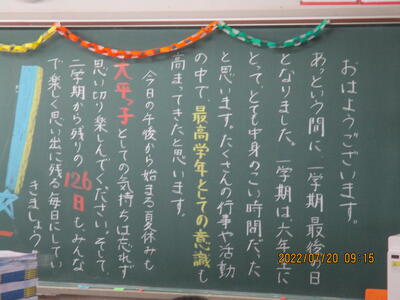 おはようございます。
あっという間に、一学期最後の日
となりました。一学期は六年生に
とって、とても中身のこい時間だった
と思います。たくさんの行事や活動
の中で、最高学年としての意識も
高まってきたと思います。
今日の午後から始まる夏休みも
大平っ子としての気持ちは忘れず
思い切り楽しんでください。そして、
二学期から残りの126日も、みんな
で楽しく思い出に残る毎日にして
いきましょう。
2022/07/20 09:15